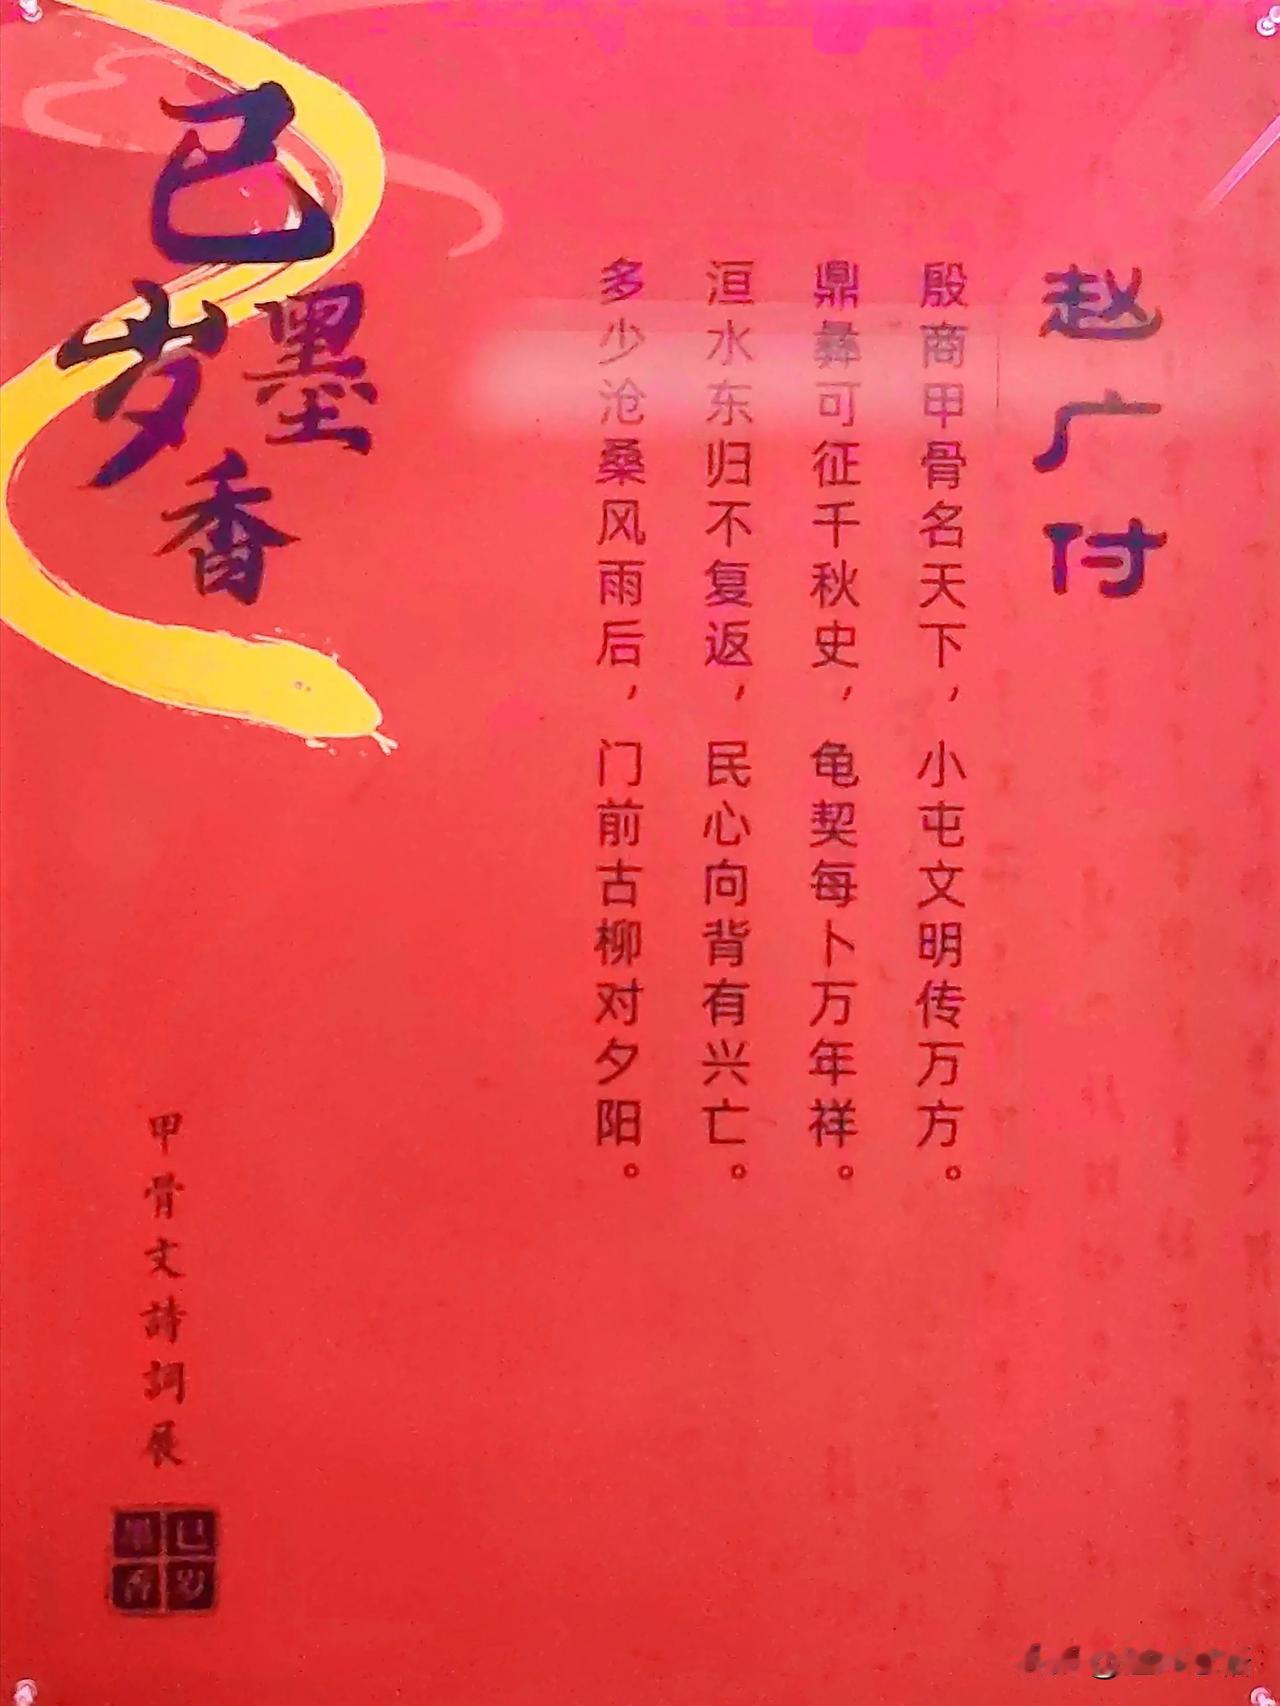 赵广付
殷商甲骨名天下，小屯文明传万方。
鼎彝可征千秋史，龟契每卜万年祥。
洹水东归不复返，民心向背有兴亡。
多少沧桑风雨后，门前古柳对夕阳。
巳岁墨香
甲骨文詩詞展
巳岁墨香